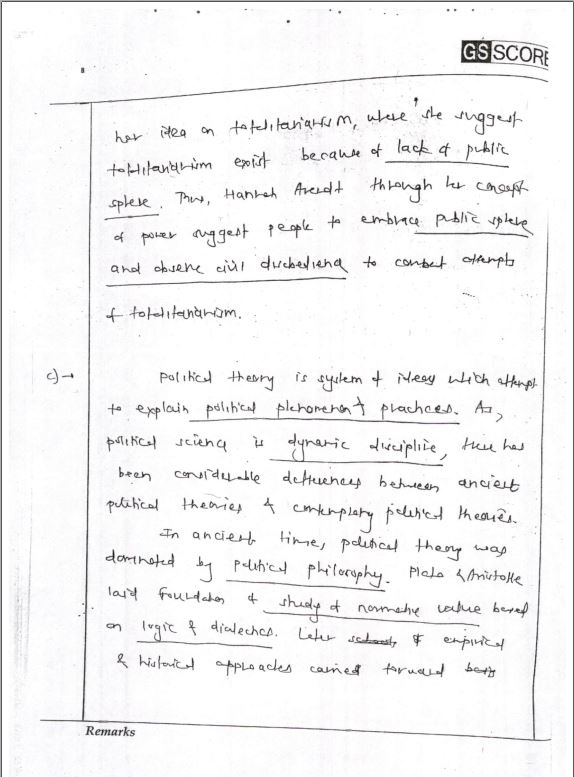 GS SCORE
her idea on totalitarianism, where she suggest
totalitarianism exist because of lack of public
sphere. Thus, Hannah Arendt through her concept
of power suggest people to embrace public sphere
and observe civil disobedience to combat attempts
of totalitarianism.
c) → Political theory is system of ideas which attempt
to explain political phenomenon & practices. As,
political science is dynamic discipline, there has
been considerable differences between ancient
political theories & contemplary political theories.
In ancient time, political theory was
dominated by political philosophy. Plato & Aristotle
laid foundation of study of normative value based
on logic & dialectics. Later & empirical
& historical approaches carried forward
Remarks